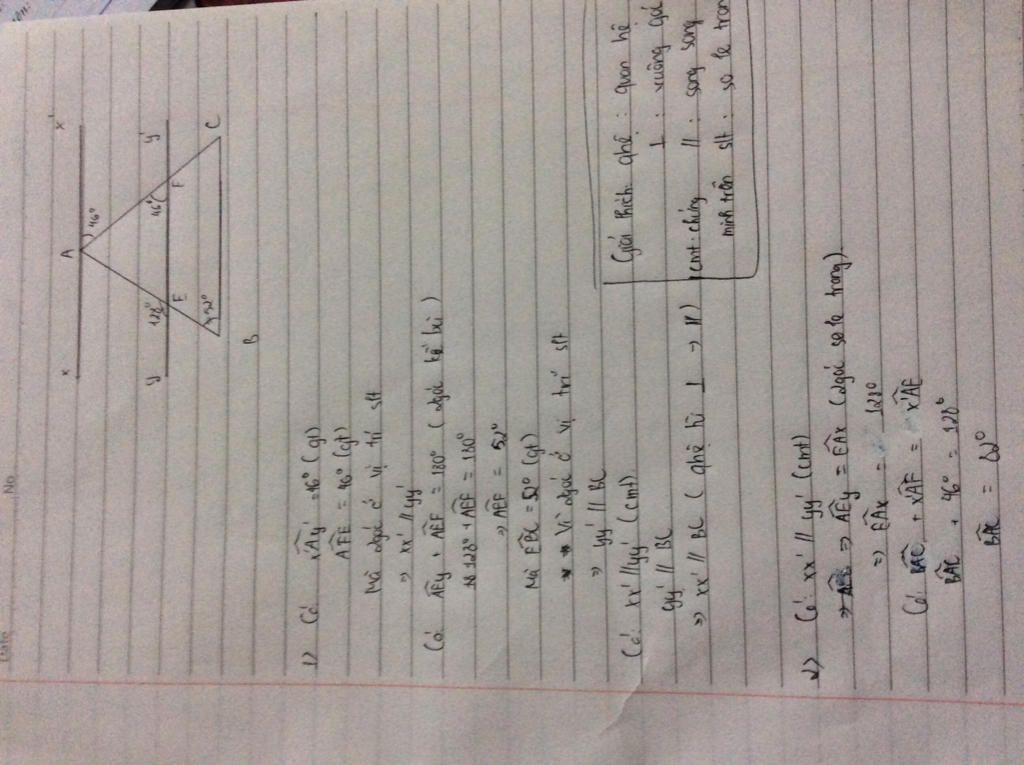 Date
No
x A x'
46°
y 128° E 46° F y'
52° C
B
1) Có x'Ay' = 46° (gt)
AFE = 46° (gt)
Mà 2góc ở vị trí slt
⇒ xx' // yy'
Có: AEy + AEF = 180° (2góc kề bù)
128° + AEF = 180°
⇒ AEF = 52°
Mà EBC = 52° (gt)
Vì 2góc ở vị trí slt
⇒ yy' // BC
Có: xx' // yy' (cmt)
yy' // BC
⇒ xx' // BC (qhệ từ ⊥ → //)
Giải thích: qhệ : quan hệ
⊥ : vuông gó
(cmt: chứng // : song song
minh trên slt : so le tron
2) Có: xx' // yy' (cmt)
⇒ AEy = EAx' (2góc so le trong)
⇒ EAx' = 128°
Có: BAC + x'AF = x'AE
BAC + 46° = 128°
BAC = 82°